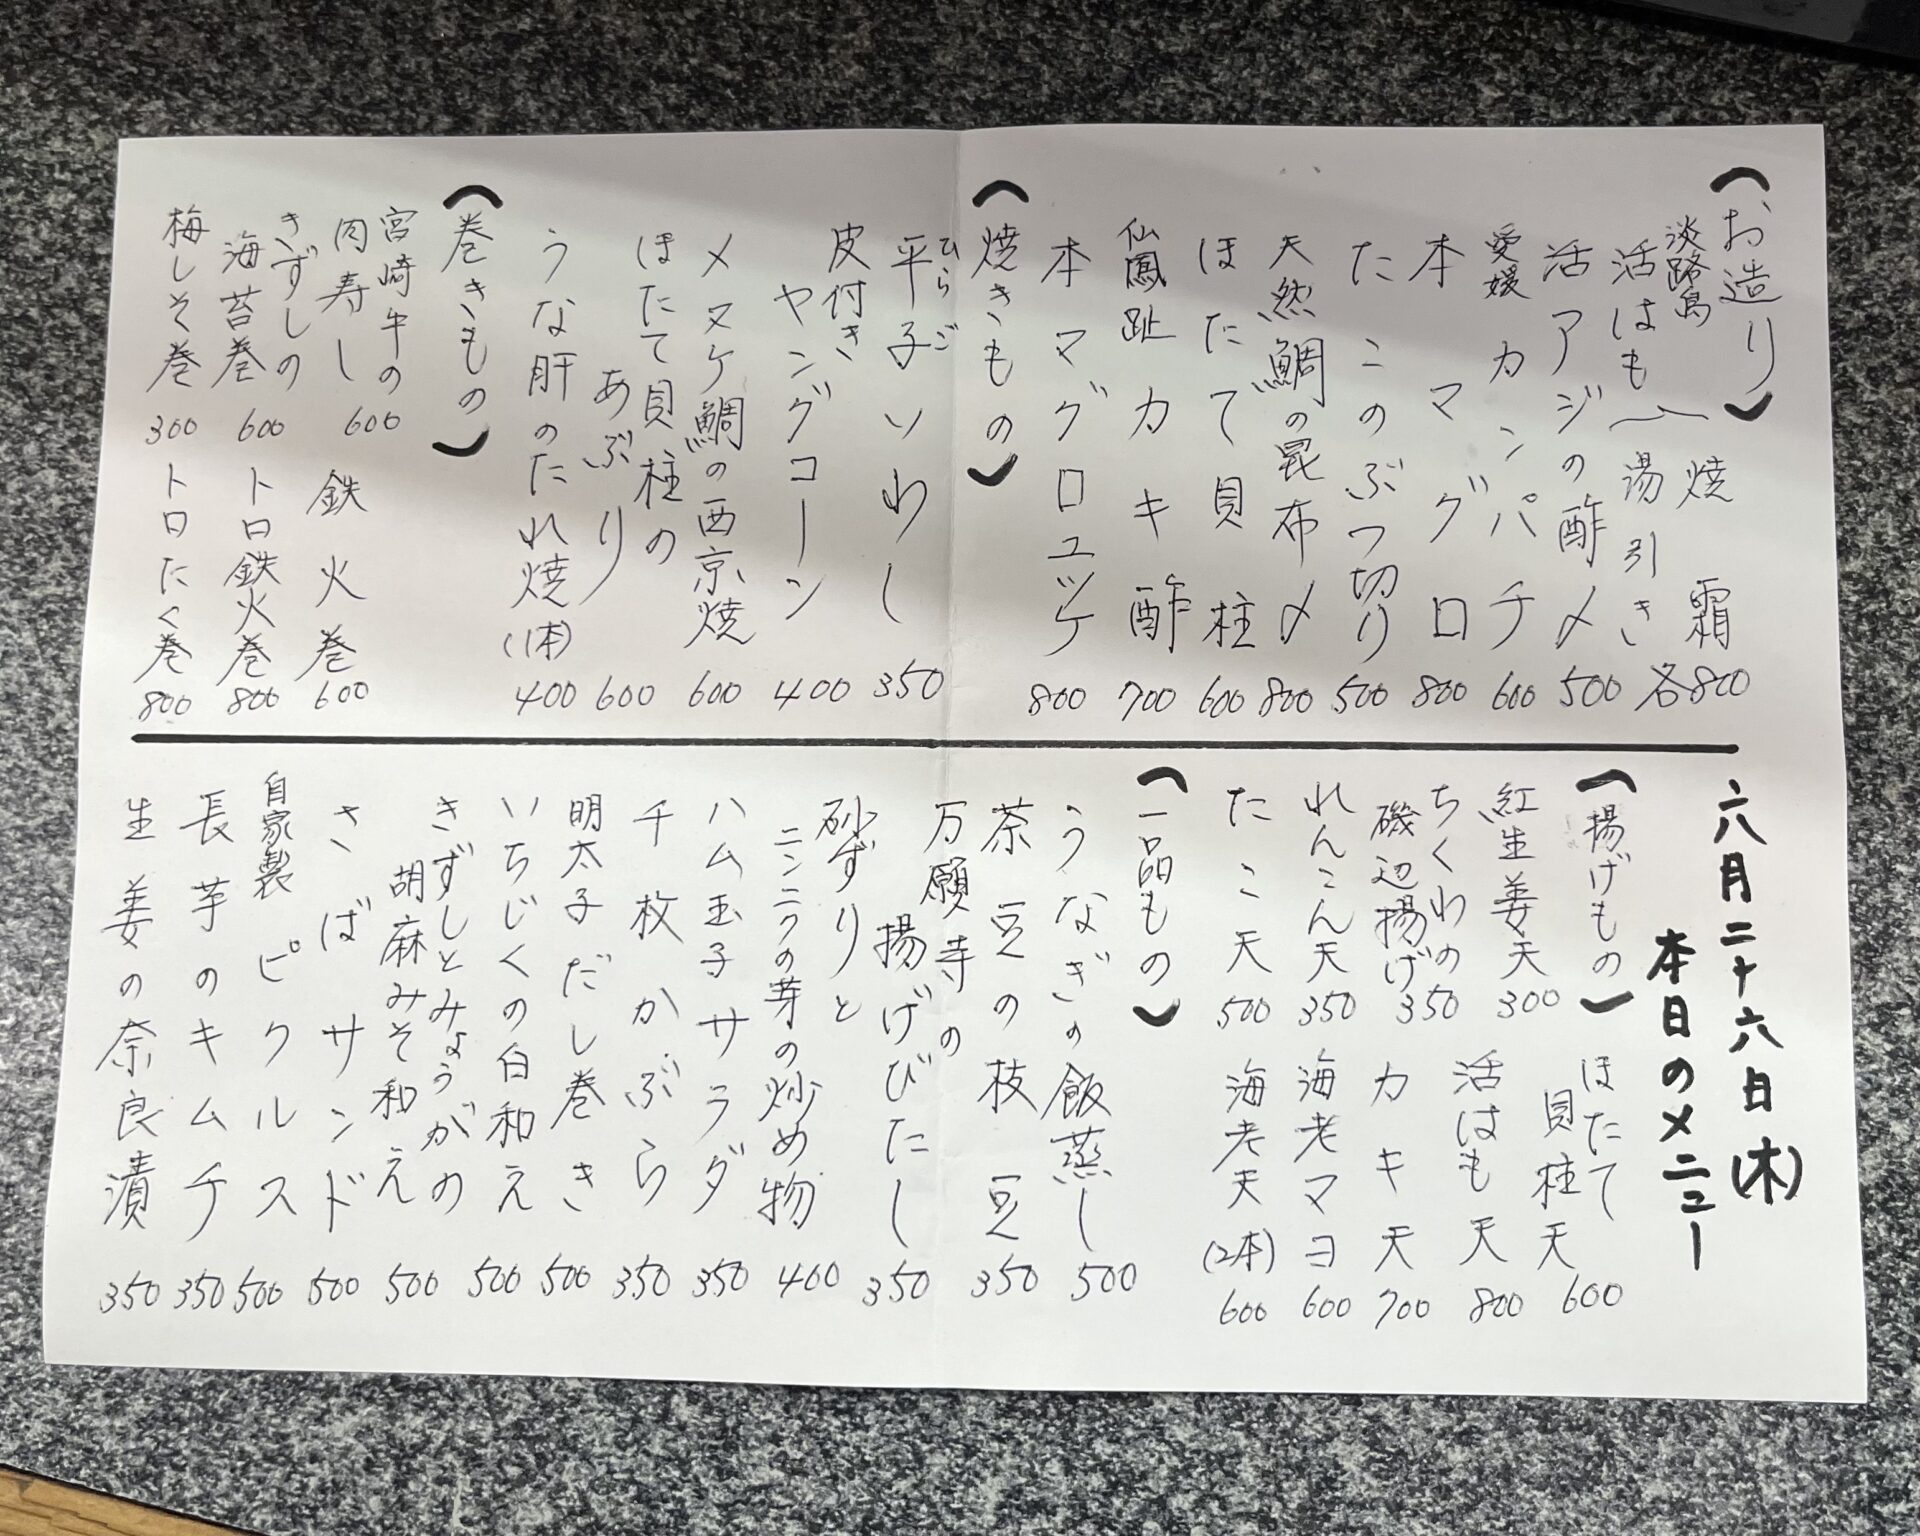 六月二十六日(木)
本日のメニュー
(お造り)
淡路島
活はも
焼霜
湯引き
各800
活アジの酢〆 500
愛媛カンパチ 600
本マグロ 800
たこのぶつ切り 500
天然鯛の昆布〆 800
ほたて貝柱 600
仙鳳趾カキ酢 700
本マグロユッケ 800
(焼きもの)
ひらご
平子いわし 350
皮付き
ヤングコーン 400
メヌケ鯛の西京焼 600
ほたて貝柱の
あぶり 600
うな肝のたれ焼(1本) 400
(巻きもの)
宮崎牛の
肉寿し 600
鉄火巻 600
きずしの
海苔巻 600
トロ鉄火巻 800
梅しそ巻 300
トロたく巻 800
(揚げもの)
紅生姜天 300
ちくわの
磯辺揚げ 350
れんこん天 350
たこ天 500
ほたて
貝柱天 600
活はも天 800
カキ天 700
海老マヨ 600
海老天(2本) 600
(一品もの)
うなぎの飯蒸し 500
茶豆の枝豆 350
万願寺の
揚げびたし 350
砂ずりと
ニンニクの芽の炒め物 400
ハム玉子サラダ 350
千枚かぶら 350
明太子だし巻き 500
いちじくの白和え 500
きずしとみょうがの
胡麻みそ和え 500
さばサンド 500
自家製ピクルス 500
長芋のキムチ 350
生姜の奈良漬 350